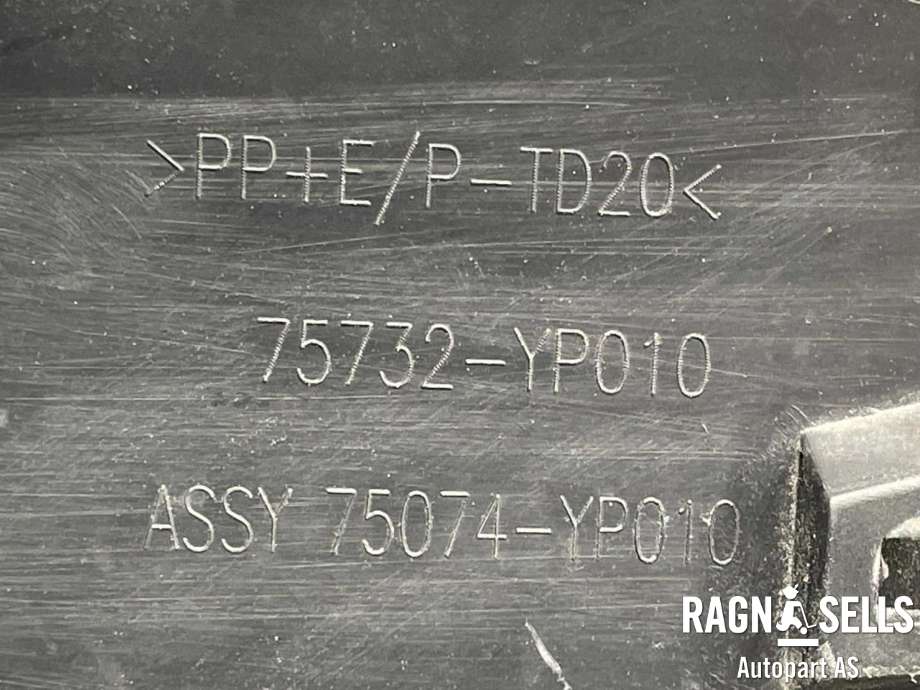 >PP+E/P-TD20<
75732-YP010
ASSY 75074-YP010
RAGN SELLS
Autopart AS